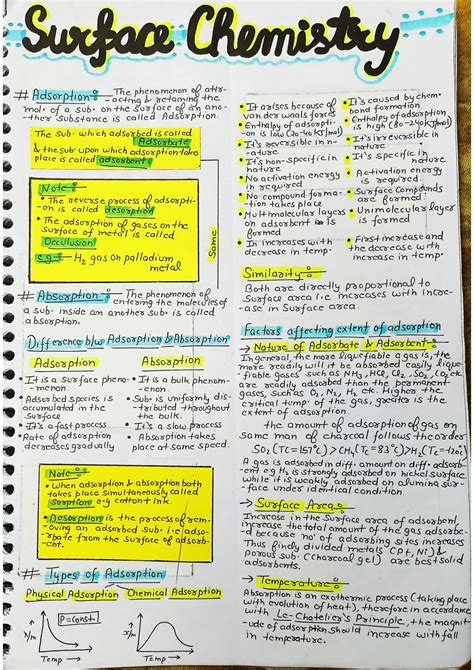 Surface Chemistry
# Adsorption : The phenomenon of attr-
acting & retaining the
mol. of a sub. on the surface of an ano-
ther substance is called Adsorption.
The sub. which adsorbed is called
Adsorbate
& the sub upon which adsorption takes
place is called adsorbent.
Note :
• The reverse process of adsorpti-
on is called desorption
• The adsorption of gases on the
surface of metal is called
Occulusion!
e.g → H₂ gas on palladium
metal
Same
# Absorption : The phenomenon of
entering the molecules
of a sub. inside an another sub. is called
absorption.
Difference b/w Adsorption & Absorption
Adsorption Absorption
• It is a surface pheno-
menon.
• Adsorbed species is
accumulated in the
surface
• It's a fast process
• Rate of adsorption
decreases gradually
• It is a bulk phenom-
enon.
• Sub. is uniformly dis-
tributed throughout
the bulk.
• It is a slow process
• Absorption takes
place at same speed.
Note :
• When adsorption & absorption both
takes place simultaneously called
Sorption e.g cotton ink.
• Desorption is the process of rem-
oving an adsorbed sub. i.e ads-
orbate from the surface of adsorb-
ent.
# Types of Adsorption
Physical Adsorption Chemical Adsorption
x/m
P = const.
Temp →
x/m
Temp →
• It arises because of
van der waals forces
• Enthalpy of adsopti-
on is low (20-40 KJ/mol)
• It's reversible in n-
ature
• It's non-specific in
nature
• No activation energy
in required
• No compound forma-
tion takes place
• Multimolecular layers
on adsorbent is
formed
• In increases with
decrease in temp.
• It's caused by chem.
bond formation
• Enthalpy of adsorption
is high (80-240 KJ/mol)
• It's irreversible in
nature
• It's specific in
nature
• Activation energy
is required
• Surface compounds
are formed
• Unimolecular layer
is formed
• First increase and
the decrease with
increase in temp.
Similarity :
Both are directly proportional to
Surface area i.e increases with incre-
ase in Surface area.
Factors affecting extent of adsorption
→ Nature of Adsorbate & Adsorbent :
In general, the more liquefiable a gas is, the
more readily will it be adsorbed easily lique-
fiable gases such as NH₃, HCl, Cl₂, SO₂, CO₂ etc
are readily adsorbed than the permanent
gases, such as O₂, N₂, H₂ etc. Higher the
critical temp. of the gas, greater is the
extent of adsorption.
the amount of adsorption of gas on
same man of charcoal follows the order
SO₂ (Tc = 157°c) > CH₄ (Tc = 83°) > H₂ (Tc = -120°)
A gas is adsorbed in diff. amount on diff. adsorb-
ent e.g H₂ is strongly adsorbed on nickel surface
while it is weakly adsorbed on alumina sur-
face under identical condition.
→ Surface Area :
Increase in the Surface area of adsorbent,
increase the total amount of the gas adsorbe-
d because no. of adsorbing sites increases
Thus finely divided metals (Pt, Ni) &
porous sub (charcoal gel) are best solid
adsorbents.
→ Temperature :
Absorption is an exothermic process (taking
with evolution of heat), therefore in accordance
with Le-Chatelier's Principle, the magnit-
ude of adsorption should increase with fall
in temperature.